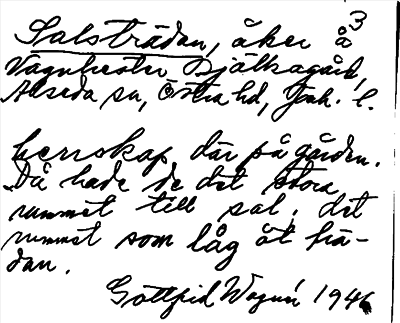 3
Salsträdan, åker å
Vägnhester Bjälkagård,
Alseda sn, Östra hd, Jönk. l.
herrskap där på gården.
Då hade de det stora
rummet till sal, det
rummet som låg åt trä-
dan.
Gottfrid Wagnér 1946